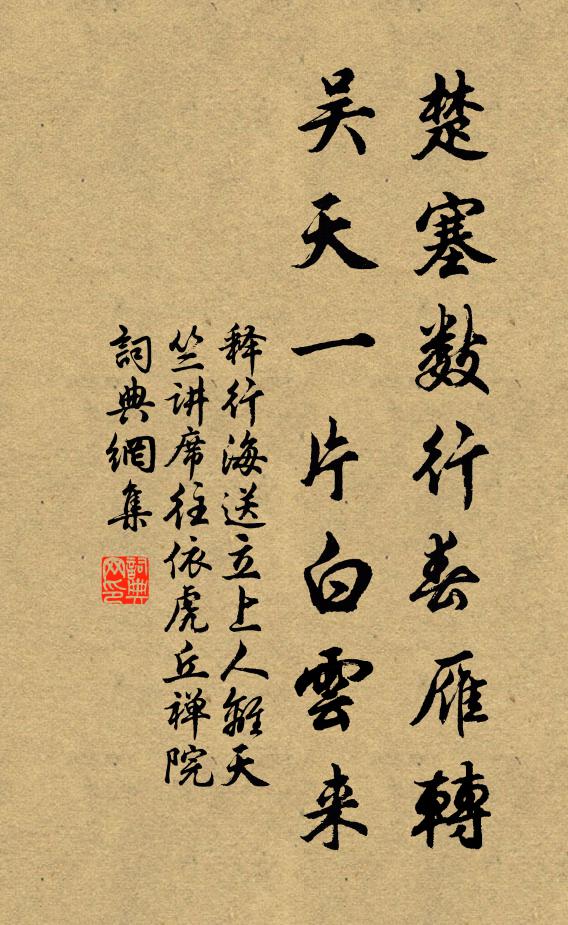 楚塞数行春雁轉
吴天一片白雲来
释行海送立上人離天
竺讲席往依虎丘禅院
詞典網集
詞典网印